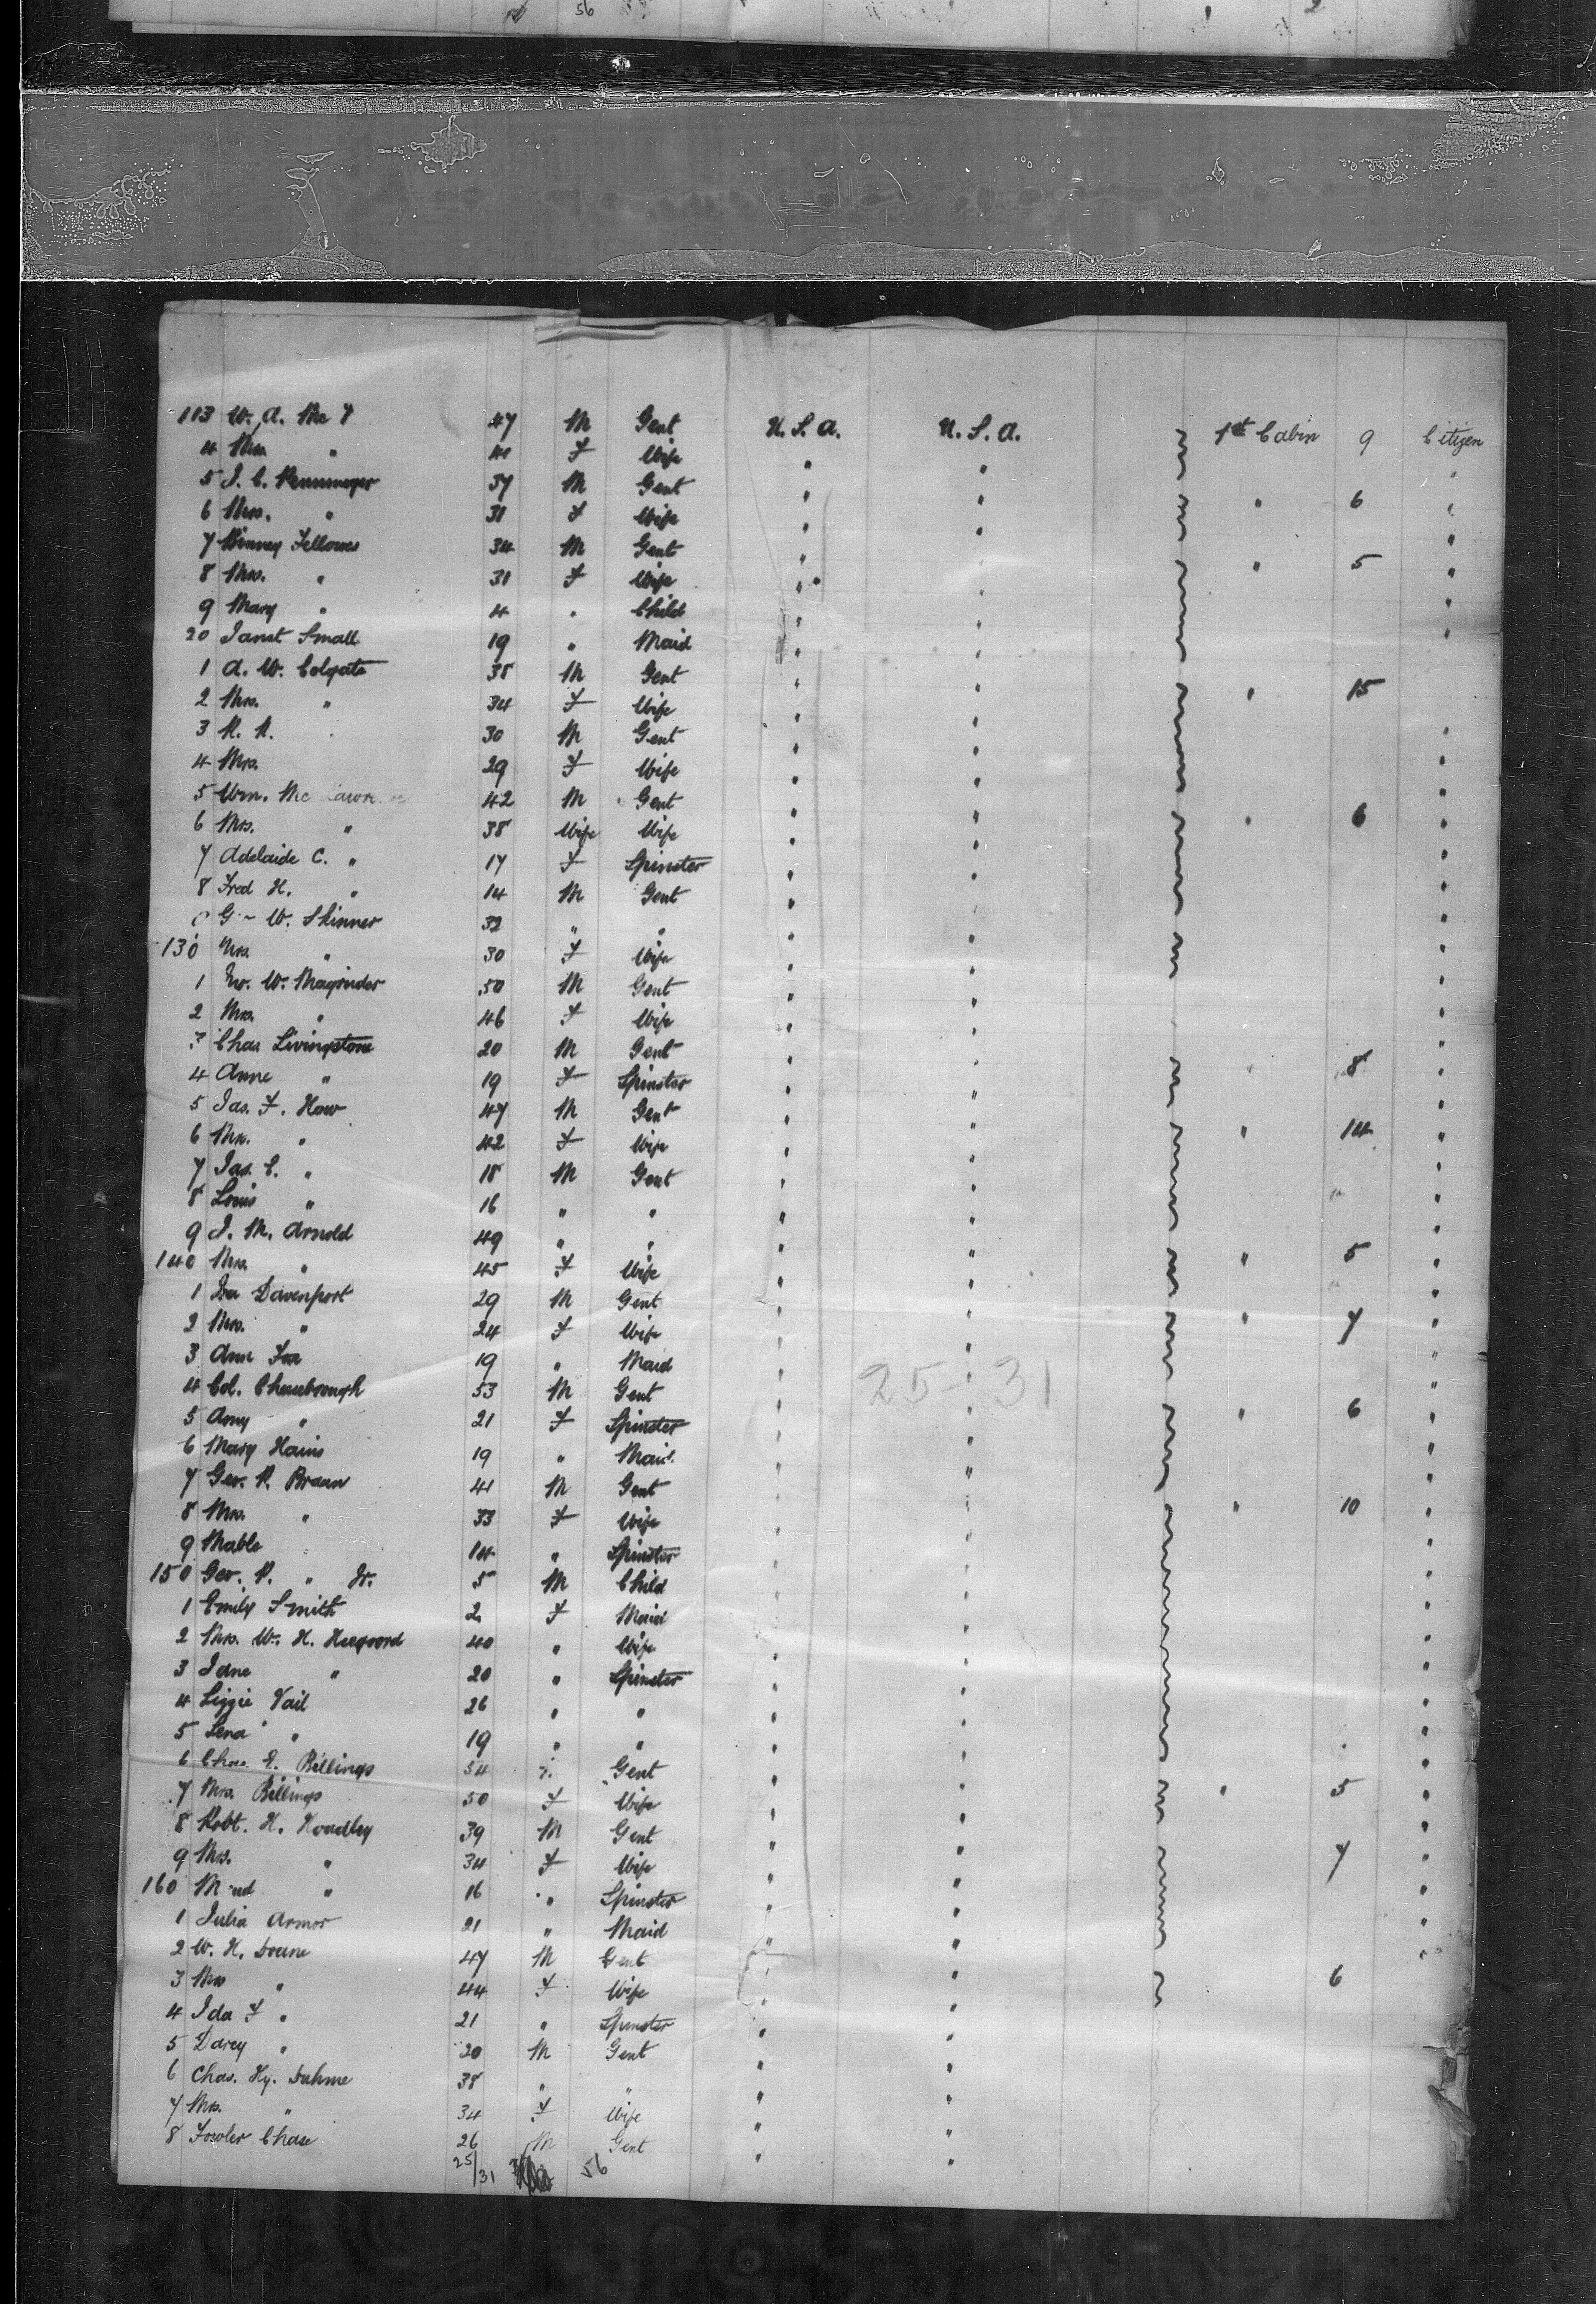 56
113 W. A. Mc 47 M Gent U.S.A. U.S.A. 1st Cabin 9 Citizen
4 Mrs. " 41 F Wife " " "
5 J. C. 37 M Gent " " " 6 "
6 Mrs. " 31 F Wife " " "
7 Binney Fellowes 34 M Gent " " " 5 "
8 Mrs. " 31 F Wife " " "
9 Mary " 4 " Child " " "
20 Janet Small 19 " Maid " "
1 A. W. Colgate 38 M Gent " " " 15
2 Mrs. " 34 F Wife " "
3 R. R. 30 M Gent " " "
4 Mrs. 29 F Wife " " "
5 Wm. Mc 42 M Gent " " " 6 "
6 Mrs. " 38 Wife Wife " " "
7 Adelaide C. " 17 F Spinster " " "
8 Fred H. " 14 M Gent " " "
G W. Skinner 32 " " " " "
130 Mrs. " 30 F Wife " " "
1 W. Magruder 50 M Gent " " "
2 Mrs. " 46 F Wife " " "
3 Chas Livingstone 20 M Gent " " " 8 "
4 Anne " 19 F Spinster " " "
5 Jas. F. How 47 M Gent " " " 14 "
6 Mrs. " 42 F Wife " " "
7 Jas. C. " 18 M Gent " " "
8 Louis " 16 " " " " "
9 J. M. Arnold 49 " " " " " 5 "
140 Mrs. " 45 F Wife " " "
1 Ira Davenport 29 M Gent " " " 7 "
2 Mrs. " 24 F Wife " " "
3 Ann Fox 19 " Maid " " "
25 31
4 Col. 53 M Gent " " " 6 "
5 Amy " 21 F Spinster " " "
6 Mary Hains 19 " Maid. " " "
7 Geo. R. Braun 41 M Gent " " " 10 "
8 Mrs. " 33 F Wife " " "
9 Mable 14 " Spinster " " "
150 Geo. R. " Jr. 5 M Child " " "
1 Emily Smith 2 F Maid " " "
2 Mrs. W. H. 40 " Wife " " "
3 Jane " 20 " Spinster " " "
4 Lizzie Vail 26 " " " " "
5 Lena " 19 " " " " "
6 Chas. E. Billings 54 Gent " " " 5 "
7 Mrs. Billings 50 F Wife " " "
8 Robt. H. Hoadley 39 M Gent " " 7 "
9 Mrs. " 34 F Wife " " "
160 M ud " 16 " Spinster " " "
1 Julia Armor 21 " Maid " " "
2 W. H. Doane 47 M Gent " " 6
3 Mrs " 44 F Wife " "
4 Ida F " 21 " Spinster " "
5 Darcy " 20 M Gent " "
6 Chas. Hy. Duhme 38 " " " "
7 Mrs. " 34 F Wife " "
8 Fowler Chase 26 M Gent " "
25/31 56